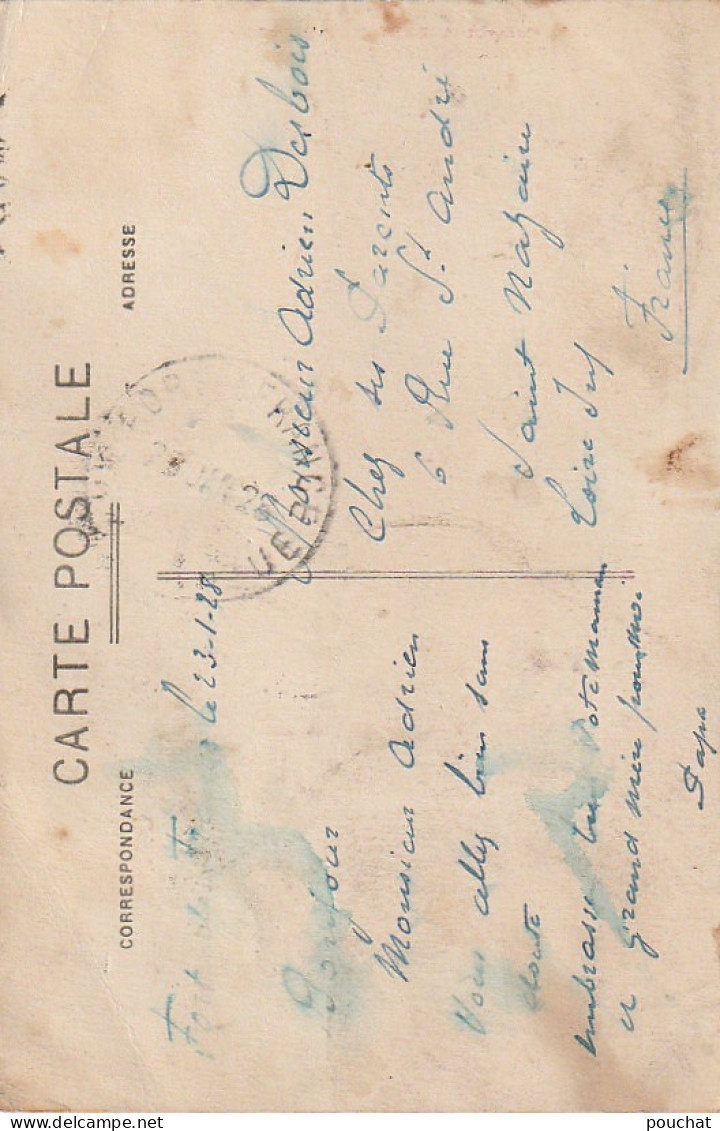 CARTE POSTALE
CORRESPONDANCE
ADRESSE
Fort de le 23-1-28
Bonjour
Monsieur Adrien
Vous allez bien sans
doute
Embrasse bien votre maman
et grand mère pour moi.
Papa
Monsieur Adrien Desbois
Chez ses Parents
6 Rue St André
Saint Nazaire
Loire Inf
France
pouchat